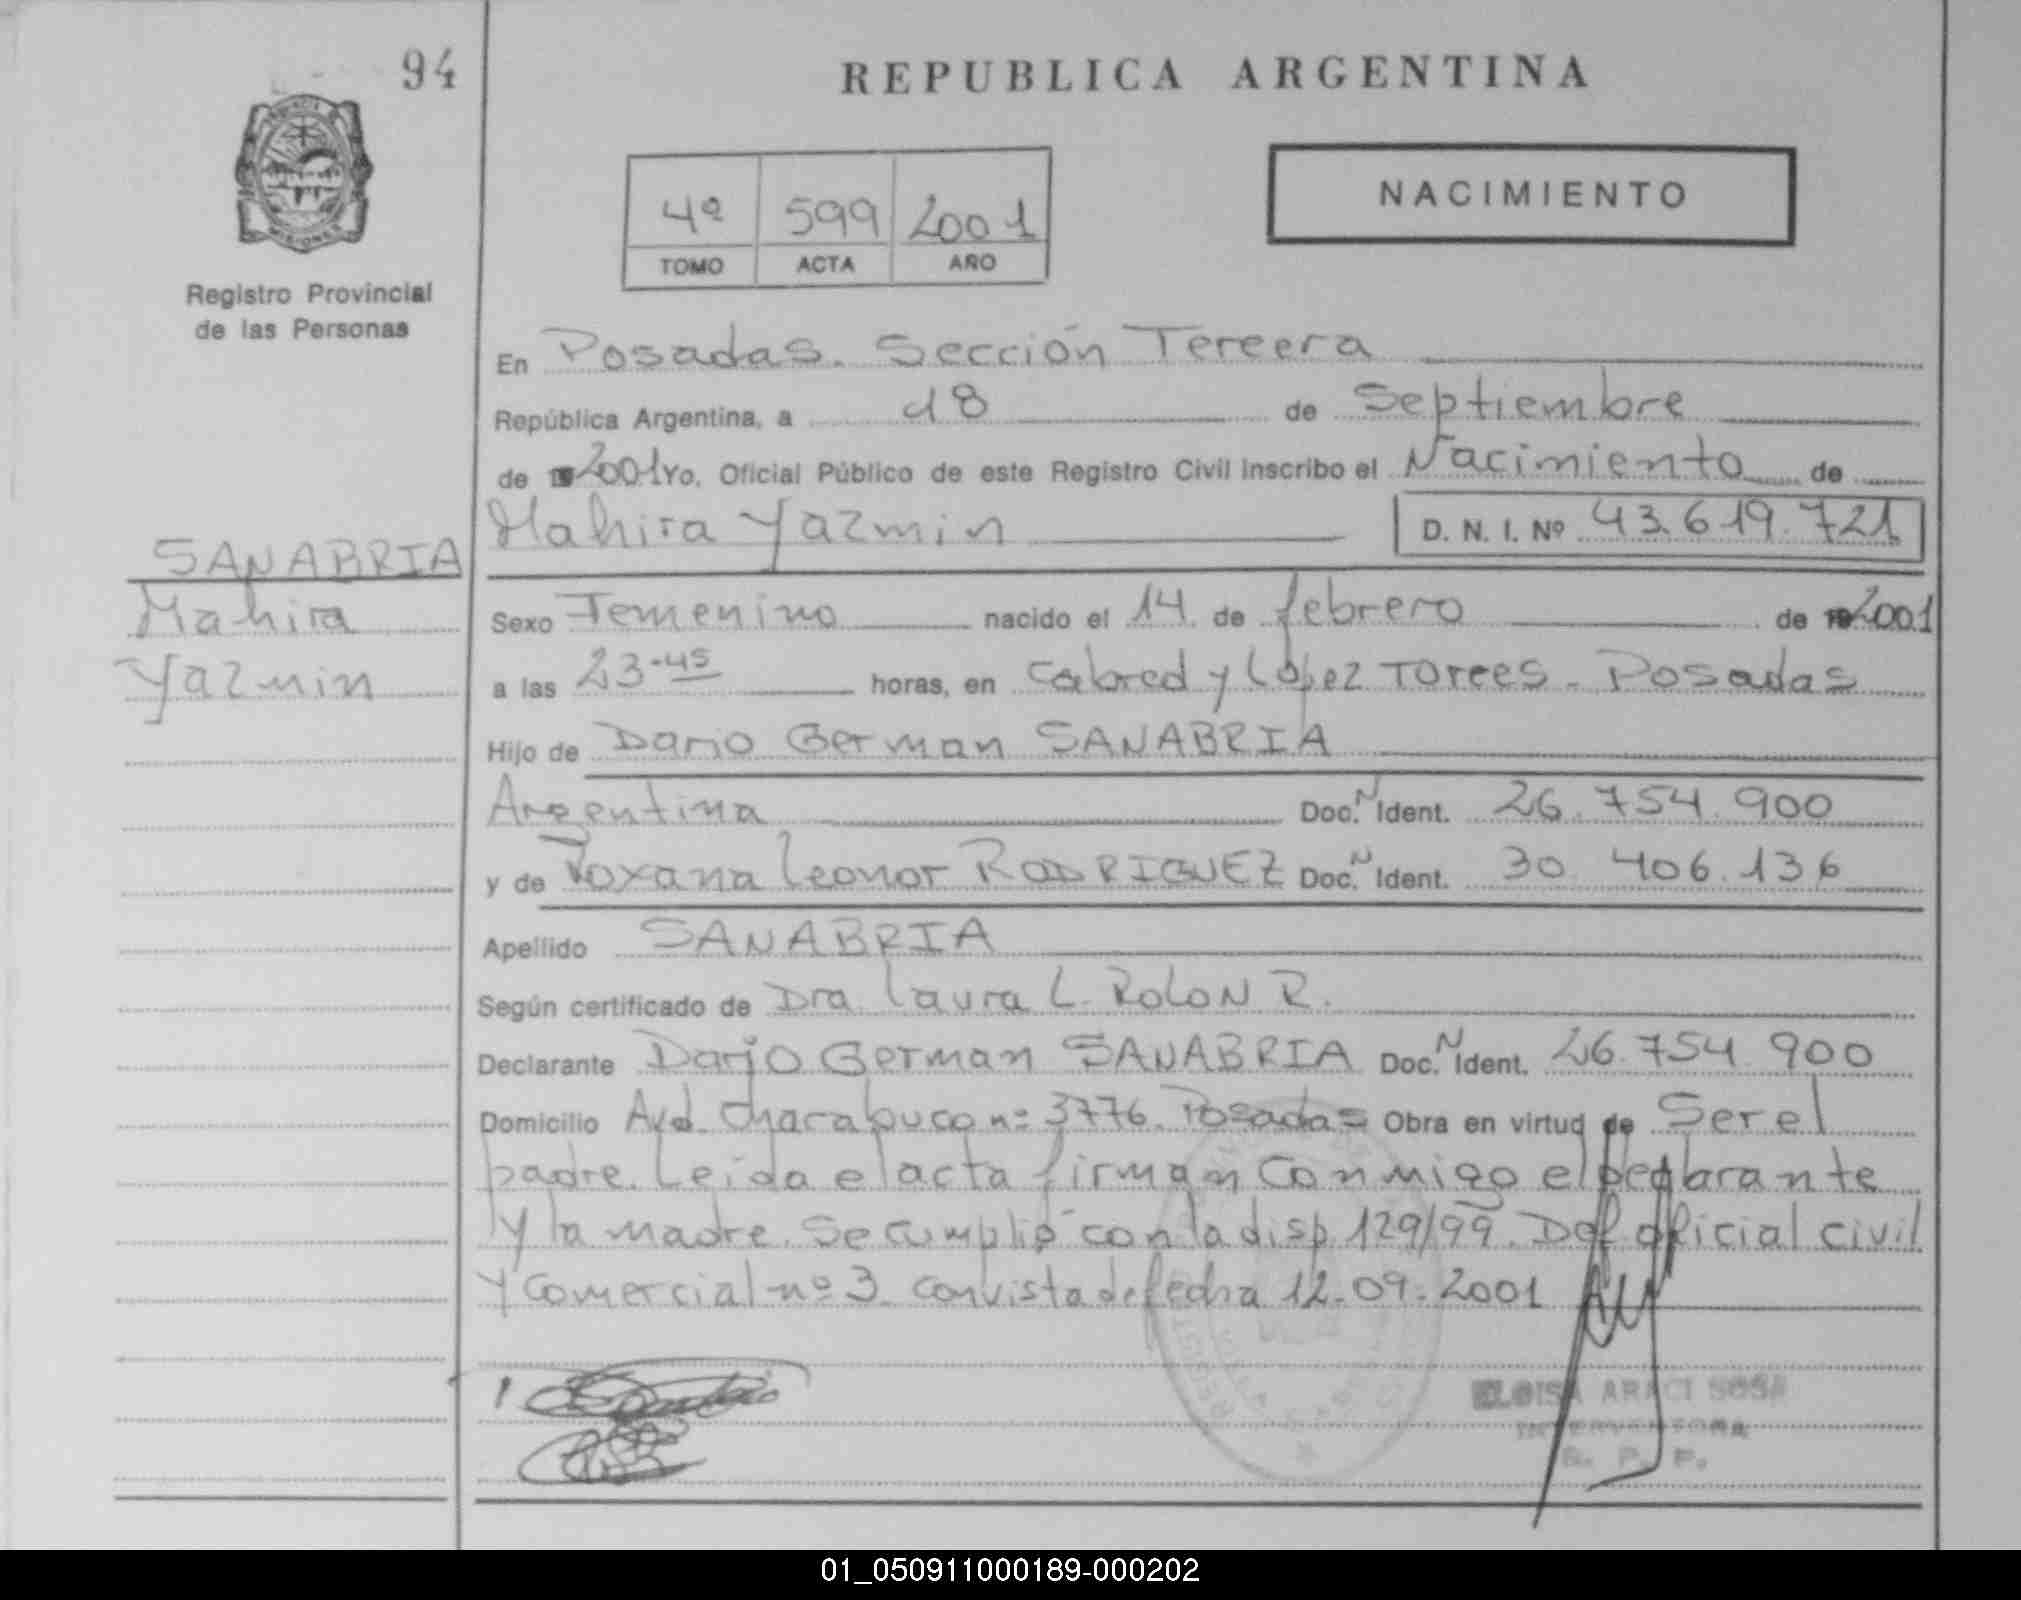 94
REPUBLICA ARGENTINA
NACIMIENTO
4º 599 2001
TOMO ACTA AÑO
MISIONES
Registro Provincial
de las Personas
En Posadas. Sección Tercera
República Argentina, a 18 de Septiembre
de 2001 Yo, Oficial Público de este Registro Civil inscribo el Nacimiento de
Mahira Yazmin D. N. I. Nº 43.619.721
SANABRIA
Mahira
Yazmin
Sexo Femenino nacido el 14 de febrero de 2001
a las 23-45 horas, en Cabred y López Torres - Posadas
Hijo de Dario German SANABRIA
Argentina Doc. N Ident. 26.754.900
y de Roxana Leonor RODRIGUEZ Doc. N Ident. 30 406.136
Apellido SANABRIA
Según certificado de Dra Laura L. ROLON R.
Declarante Dario German SANABRIA Doc. N Ident. 26.754.900
Domicilio Avd. Chacabuco nº 3776. Posadas Obra en virtud de Ser el
padre. Leida el acta firman conmigo el Declarante
y la madre. Se cumplió con la disp. 129/99. Def oficial civil
y Comercial nº 3 con vista de fecha 12-09-2001
ELOISA ARACI SOSA
INTERVENTORA
R. P. P.
01_050911000189-000202